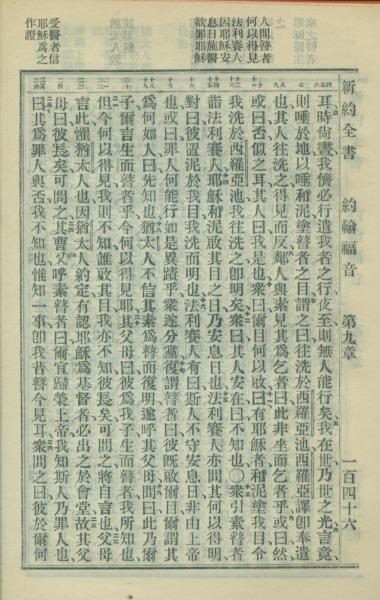 新約全書 約翰福音 第九章 一百四十六
人問瞽者
何以得見
法利賽人
因耶穌安
息日施醫
欲罪耶穌
受醫者信
耶穌爲之
作證
耳時尚晝我儕必行遣我者之行夜至則無人能行矣我在世乃世之光言竟
則唾於地以唾和泥塗瞽者之目謂之曰往洗於西羅亞池西羅亞譯卽奉遣
也其人往洗之得見而反鄰人與素見其爲乞者曰此非坐而乞者乎或曰然
或曰否似之耳其人曰我是也衆曰爾目何以啟曰有耶穌者和泥塗我目令
我洗於西羅亞池我往洗之卽明矣衆曰其人安在曰不知也〇衆引素瞽者
詣法利賽人耶穌和泥啟其目之日乃安息日也法利賽人亦問其何以得明
對曰彼置泥於我目我洗而明也法利賽人有曰斯人不守安息日非由上帝
也或曰罪人何能行如是異蹟乎衆遂分黨復謂瞽者曰彼旣啟爾目爾謂其
爲何如人曰先知也猶太人不信其素爲瞽而復明遂呼其父母問曰此乃爾
子爾言生而瞽者乎今何以得見耶其父母曰彼爲我子生而瞽者我所知也
但今何以得見我則不知誰啟其目我亦不知彼長矣可問之將自言也父母
言此懼猶太人也因猶太人約定有認耶穌爲基督者必出之於會堂故其父
母曰彼長矣可問之其曹又呼素瞽者曰爾宜歸榮上帝我知斯人乃罪人也
曰其爲罪人與否我不知也惟知一事卽我昔瞽今見耳衆問之曰彼於爾何